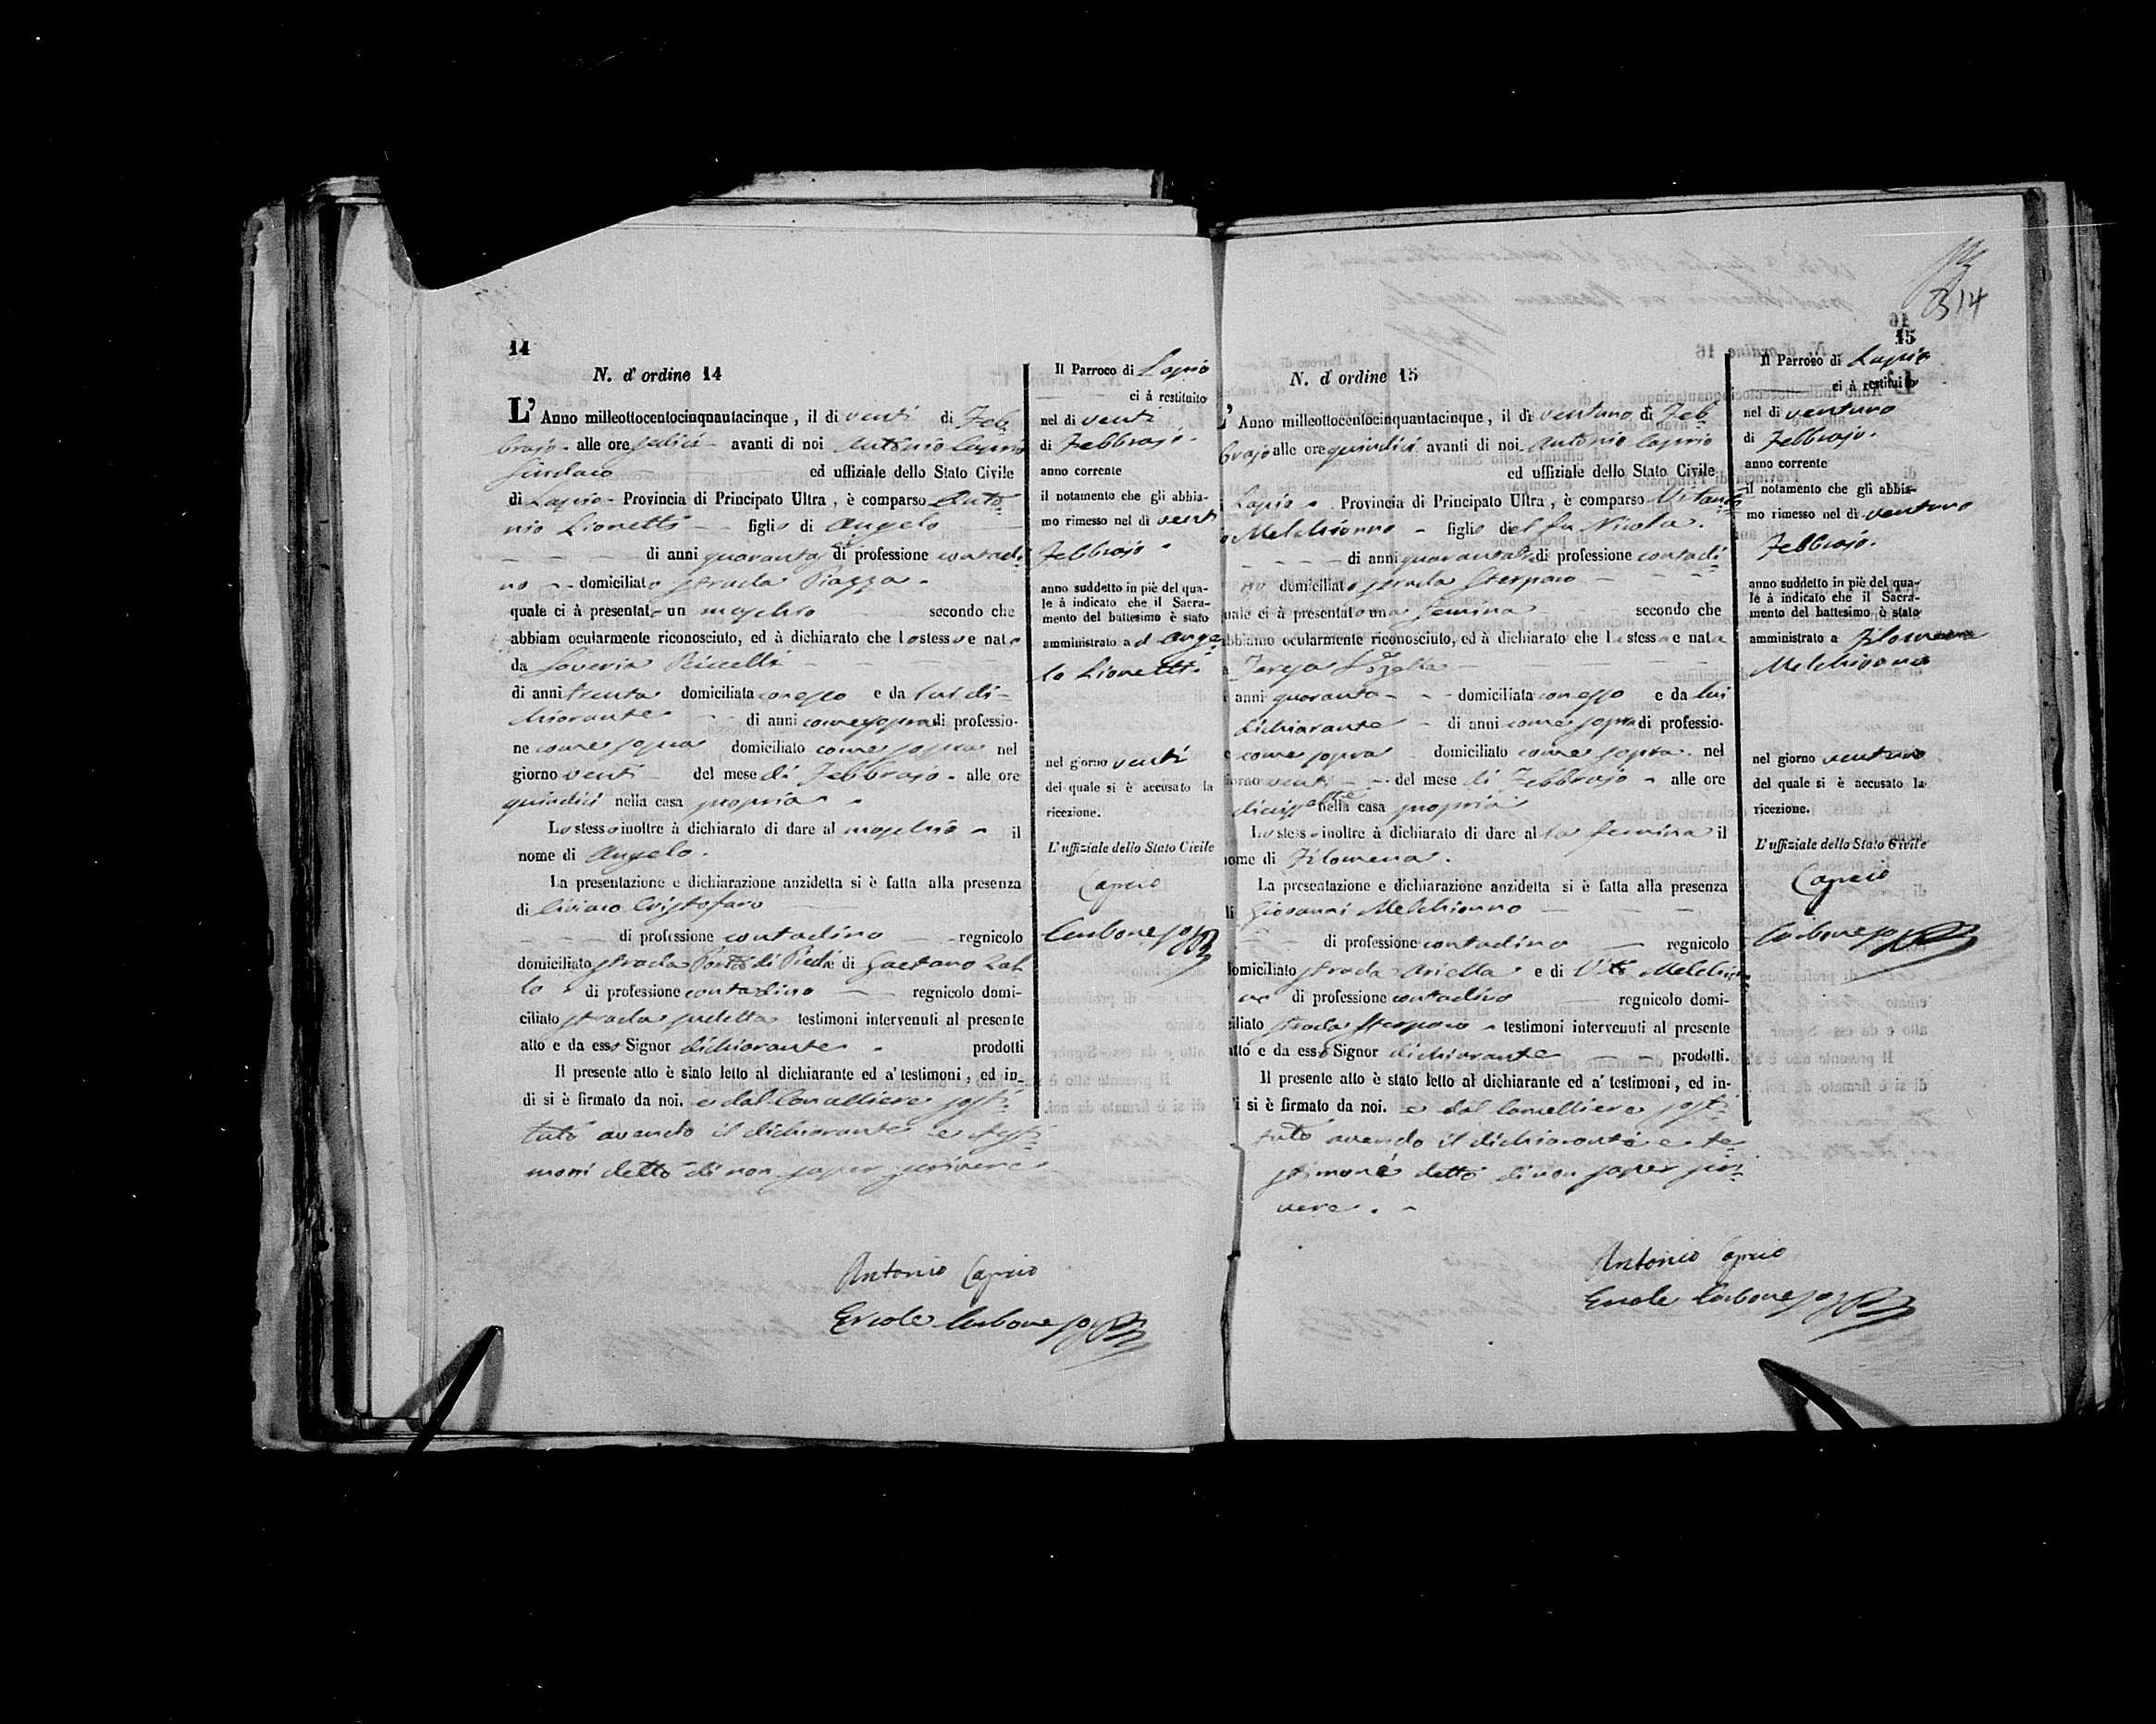 14
N. d' ordine 14
L' Anno milleottocentocinquantacinque, il dì venti di Feb=
brajo - alle ore sedici - avanti di noi Antonio Caprio
Sindaco ed uffiziale dello Stato Civile
di Lapio - Provincia di Principato Ultra, è comparso Anto=
nio Lionetti - figlio di Angelo
di anni quaranta di professione contadi=
no - domiciliato strada Piazza -
quale ci à presentato un maschio secondo che
abbiam ocularmente riconosciuto, ed à dichiarato che lo stesso e nato
da Saveria
di anni trenta domiciliata con esso e da lui di-
chiarante di anni come sopra di professio-
ne come sopra domiciliato come sopra nel
giorno venti - del mese di Febbrajo - alle ore
quindici nella casa propria -
Lo stesso inoltre à dichiarato di dare al maschio - il
nome di Angelo.
La presentazione e dichiarazione anzidetta si è fatta alla presenza
di Ciriaco Cristofaro
di professione contadino - regnicolo
domiciliato strada di Gaetano
di professione contadino regnicolo domi-
ciliato strada sudetta testimoni intervenuti al presente
atto e da esso Signor dichiarante - prodotti
Il presente atto è stato letto al dichiarante ed a' testimoni, ed in-
di si è firmato da noi. e dal Cancelliere sosti=
tuto avendo il dichiarante e testi=
moni detto di non saper scrivere
Antonio Caprio
Ercole Carbone
Il Parroco di Lapio
ci à restituito
nel dì venti
di Febbrajo -
anno corrente
il notamento che gli abbia-
mo rimesso nel dì venti
Febbrajo -
anno suddetto in piè del qua-
le à indicato che il Sacra-
mento del battesimo è stato
amministrato a d Ange=
lo Lionetti -
nel giorno venti
del quale si è accusato la
ricezione.
L'uffiziale dello Stato Civile
Caprio
Carbone
314
15
N. d' ordine 15
L' Anno milleottocentocinquantacinque, il dì ventuno di Feb=
brajo alle ore quindici avanti di noi Antonio Caprio
ed uffiziale dello Stato Civile
Lapio - Provincia di Principato Ultra, è comparso
Melchionno - figlio del fu Nicola.
di anni quaranta di professione contadi=
no domiciliato strada Sterparo
quale ci à presentato una femina secondo che
abbiamo ocularmente riconosciuto, ed à dichiarato che la stessa e nata
a Teresa
anni quaranta - domiciliata con esso e da lui
dichiarante - di anni come sopra di professio-
e come sopra domiciliato come sopra nel
giorno venti - del mese di Febbrajo - alle ore
diciassette nella casa propria
Lo stesso inoltre à dichiarato di dare al la femina il
nome di Filomena.
La presentazione e dichiarazione anzidetta si è fatta alla presenza
di Giovanni Melchionno
di professione contadino regnicolo
domiciliato strada Ariella e di Vito Melchion=
no di professione contadino regnicolo domi-
ciliato strada Sterparo - testimoni intervenuti al presente
atto e da esso Signor dichiarante prodotti.
Il presente atto è stato letto al dichiarante ed a' testimoni, ed in-
di si è firmato da noi. e dal Cancelliere sosti=
tuto avendo il dichiarante e te=
stimoni detto di non saper scri=
vere. -
Antonio Caprio
Ercole Carbone
Il Parroco di Lapio
ci à restituito
nel dì ventuno
di Febbrajo.
anno corrente
il notamento che gli abbia-
mo rimesso nel dì ventuno
Febbrajo.
anno suddetto in piè del qua-
le à indicato che il Sacra-
mento del battesimo è stato
amministrato a Filomena
Melchionno
nel giorno ventuno
del quale si è accusato la
ricezione.
L'uffiziale dello Stato Civile
Caprio
Carbone